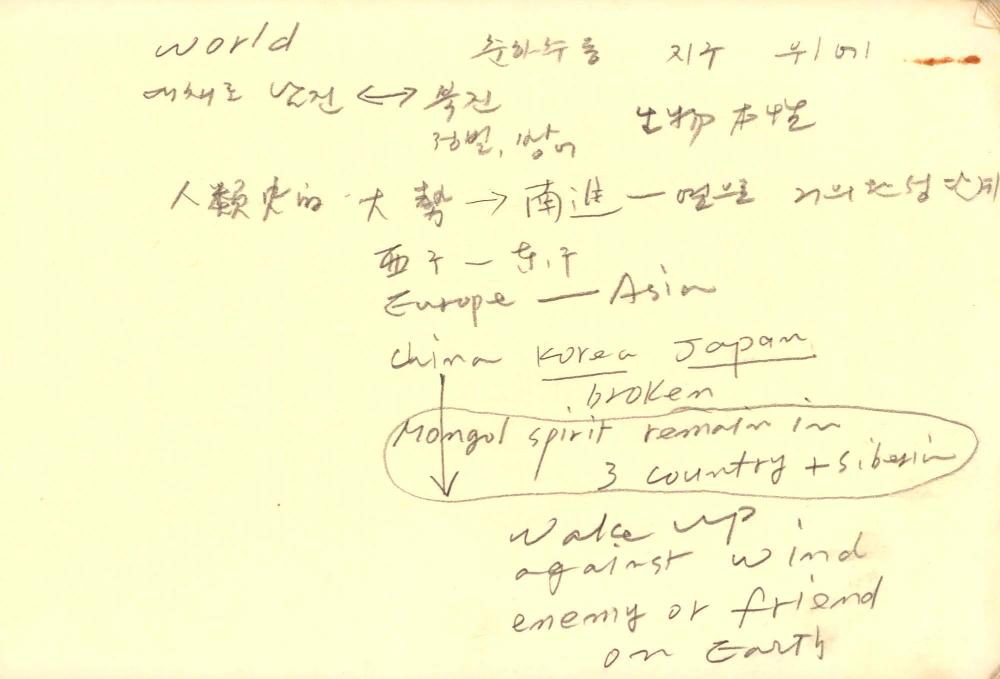 world 춘하추동 지구 위에
예채로 남진 ↔ 북진
정벌, 방어 生物本性
人類史的 大勢 → 南進 — 열으로 거의 완성 단계
西구 — 东구
Europe — Asia
China Korea Japan
broken
Mongol spirit remain in
3 country + Siberia
Wake up
against wind
enemy or friend
on Earth